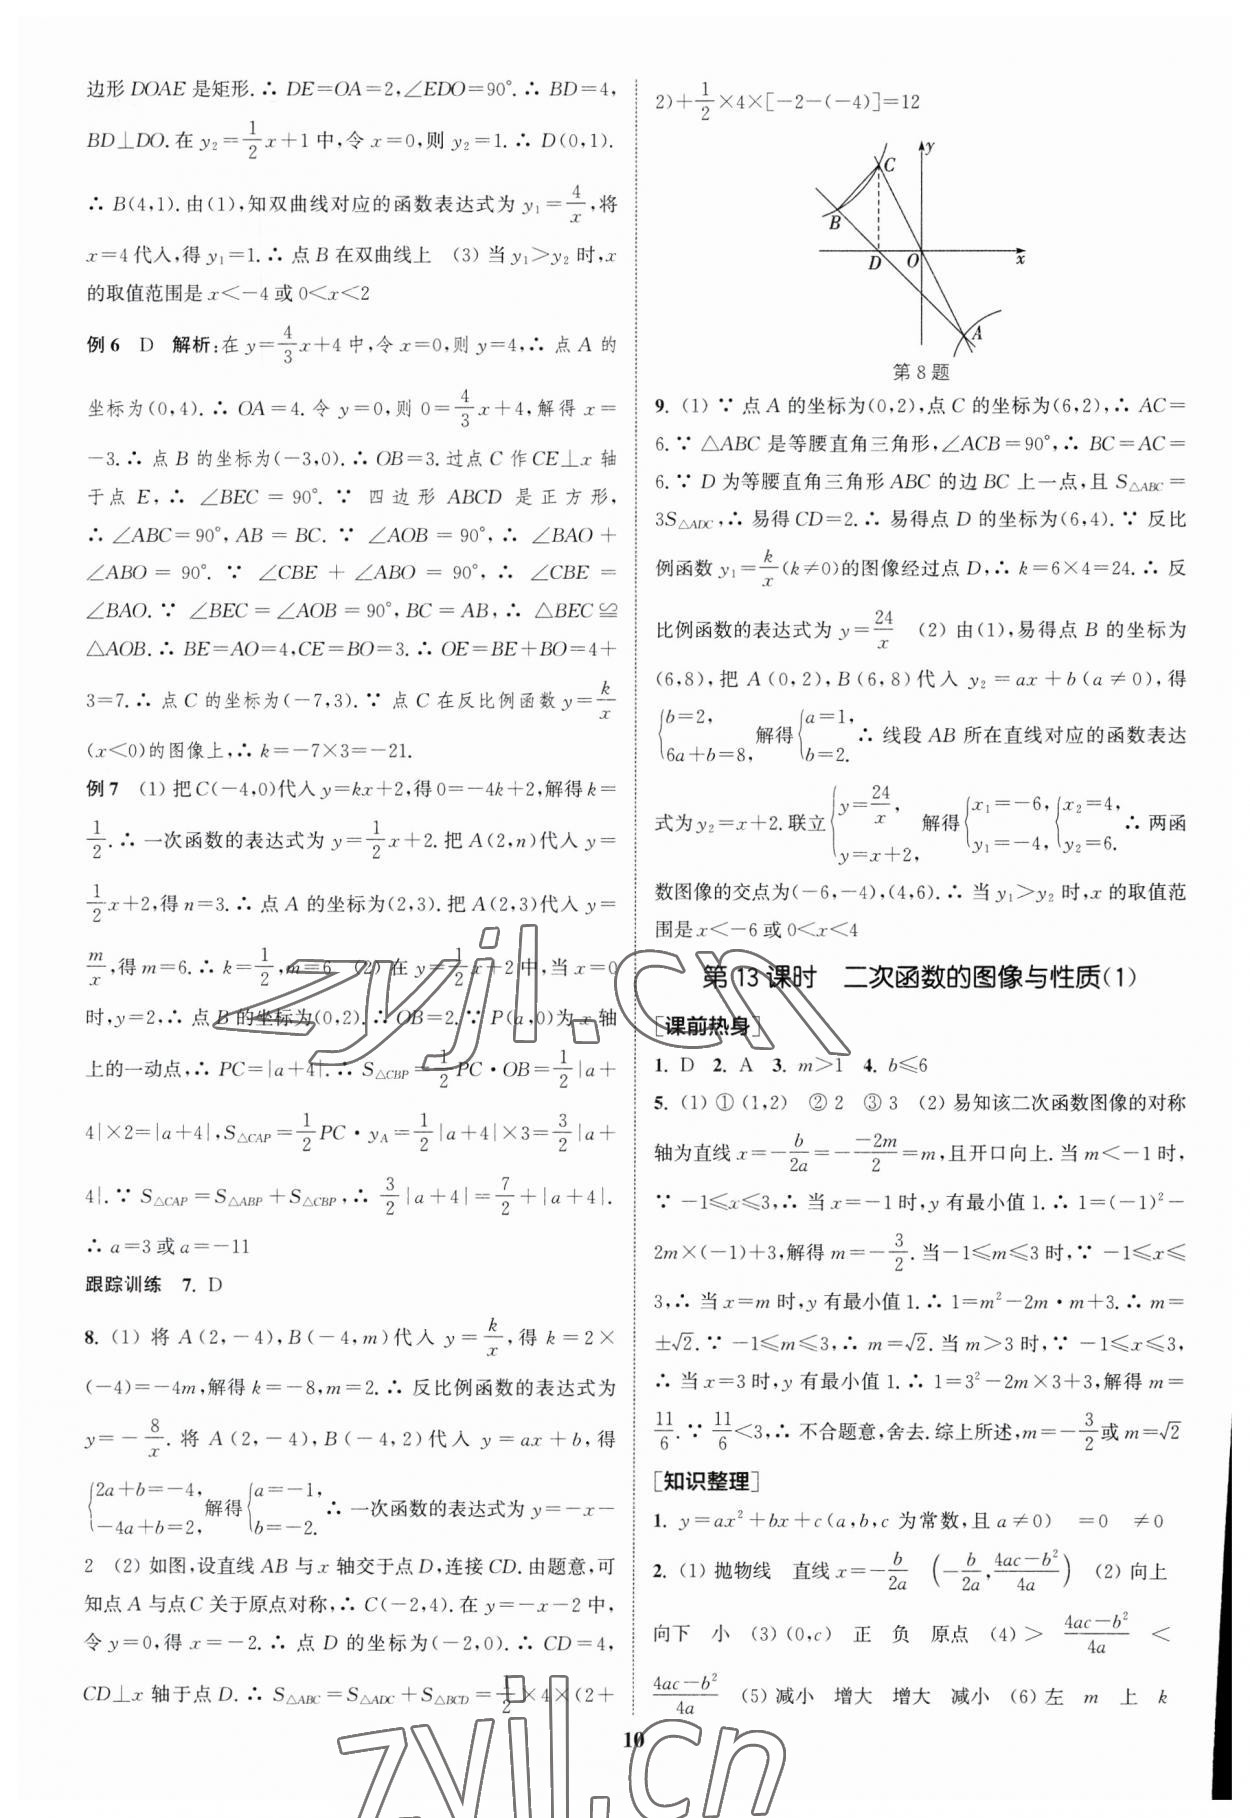 边形 DOAE 是矩形.∴ DE=OA=2,∠EDO=90°.∴ BD=4,
BD⊥DO.在 y₂=1/2x+1 中,令 x=0,则 y₂=1.∴ D(0,1).
∴ B(4,1).由(1),知双曲线对应的函数表达式为 y₁=4/x,将
x=4代入,得 y₁=1.∴ 点 B 在双曲线上 (3) 当 y₁>y₂ 时,x
的取值范围是 x<-4 或 0<x<2
例6 D 解析:在 y=4/3x+4 中,令 x=0,则 y=4,∴ 点 A 的
坐标为(0,4).∴ OA=4.令 y=0,则 0=4/3x+4,解得 x=
-3.∴ 点 B 的坐标为(-3,0).∴ OB=3.过点 C 作 CE⊥x 轴
于点 E,∴ ∠BEC=90°.∵ 四边形 ABCD 是正方形,
∴ ∠ABC=90°,AB=BC.∵ ∠AOB=90°,∴ ∠BAO+
∠ABO=90°.∵ ∠CBE+∠ABO=90°,∴ ∠CBE=
∠BAO.∵ ∠BEC=∠AOB=90°,BC=AB,∴ △BEC≌
△AOB.∴ BE=AO=4,CE=BO=3.∴ OE=BE+BO=4+
3=7.∴ 点 C 的坐标为(-7,3).∵ 点 C 在反比例函数 y=k/x
(x<0)的图像上,∴ k=-7×3=-21.
例7 (1) 把C(-4,0)代入 y=kx+2,得0=-4k+2,解得 k=
1/2.∴ 一次函数的表达式为 y=1/2x+2.把 A(2,n)代入 y=
1/2x+2,得 n=3.∴ 点 A 的坐标为(2,3).把 A(2,3)代入 y=
m/x,得 m=6.∴ k=1/2,m=6 (2) 在 y=1/2x+2中,当 x=0
时,y=2,∴ 点 B 的坐标为(0,2).∴ OB=2.∵ P(a,0)为 x 轴
上的一动点,∴ PC=|a+4|.∴ S△CBP=1/2PC·OB=1/2|a+
4|×2=|a+4|,S△CAP=1/2PC·yA=1/2|a+4|×3=3/2|a+
4|.∵ S△CAP=S△ABP+S△CBP,∴ 3/2|a+4|=7/2+|a+4|.
∴ a=3 或 a=-11
跟踪训练 7. D
8. (1) 将 A(2,-4),B(-4,m)代入 y=k/x,得 k=2×
(-4)=-4m,解得 k=-8,m=2.∴ 反比例函数的表达式为
y=-8/x.将 A(2,-4),B(-4,2)代入 y=ax+b,得
{2a+b=-4, -4a+b=2, 解得{a=-1, b=-2. ∴ 一次函数的表达式为 y=-x-
2 (2) 如图,设直线 AB 与 x 轴交于点 D,连接 CD.由题意,可
知点 A 与点 C 关于原点对称,∴ C(-2,4).在 y=-x-2 中,
令 y=0,得 x=-2.∴ 点 D 的坐标为(-2,0).∴ CD=4,
CD⊥x 轴于点 D.∴ S△ABC=S△ADC+S△BCD=1/2×4×(2+
2)+1/2×4×[-2-(-4)]=12
y
C
B
D
O
x
A
第 8 题
9. (1) ∵ 点 A 的坐标为(0,2),点 C 的坐标为(6,2),∴ AC=
6.∵ △ABC 是等腰直角三角形,∠ACB=90°,∴ BC=AC=
6.∵ D 为等腰直角三角形 ABC 的边 BC 上一点,且 S△ABC=
3S△ADC,∴ 易得 CD=2.∴ 易得点 D 的坐标为(6,4).∵ 反比
例函数 y₁=k/x(k≠0)的图像经过点 D,∴ k=6×4=24.∴ 反
比例函数的表达式为 y=24/x (2) 由(1),易得点 B 的坐标为
(6,8),把 A(0,2),B(6,8)代入 y₂=ax+b(a≠0),得
{b=2, 6a+b=8, 解得{a=1, b=2. ∴ 线段 AB 所在直线对应的函数表达
式为 y₂=x+2.联立{y=24/x, y=x+2, 解得{x₁=-6, y₁=-4, {x₂=4, y₂=6. ∴ 两函
数图像的交点为(-6,-4),(4,6).∴ 当 y₁>y₂ 时,x 的取值范
围是 x<-6 或 0<x<4
第 13 课时 二次函数的图像与性质(1)
[课前热身]
1. D 2. A 3. m>1 4. b≤6
5. (1) ① (1,2) ② 2 ③ 3 (2) 易知该二次函数图像的对称
轴为直线 x=-b/2a=-(-2m)/2=m,且开口向上.当 m<-1 时,
∵ -1≤x≤3,∴ 当 x=-1 时,y 有最小值 1.∴ 1=(-1)²-
2m×(-1)+3,解得 m=-3/2.当-1≤m≤3 时,∵ -1≤x≤
3,∴ 当 x=m 时,y 有最小值 1.∴ 1=m²-2m·m+3.∴ m=
±√2.∵ -1≤m≤3,∴ m=√2.当 m>3 时,∵ -1≤x≤3,
∴ 当 x=3 时,y 有最小值 1.∴ 1=3²-2m×3+3,解得 m=
11/6.∵ 11/6<3,∴ 不合题意,舍去.综上所述,m=-3/2或 m=√2
[知识整理]
1. y=ax²+bx+c(a,b,c 为常数,且 a≠0) =0 ≠0
2. (1) 抛物线 直线 x=-b/2a (-b/2a,(4ac-b²)/4a) (2) 向上
向下 小 (3) (0,c) 正 负 原点 (4) > (4ac-b²)/4a <
(4ac-b²)/4a (5) 减小 增大 增大 减小 (6) 左 m 上 k
10
zyjl.cn
zyjl.cn